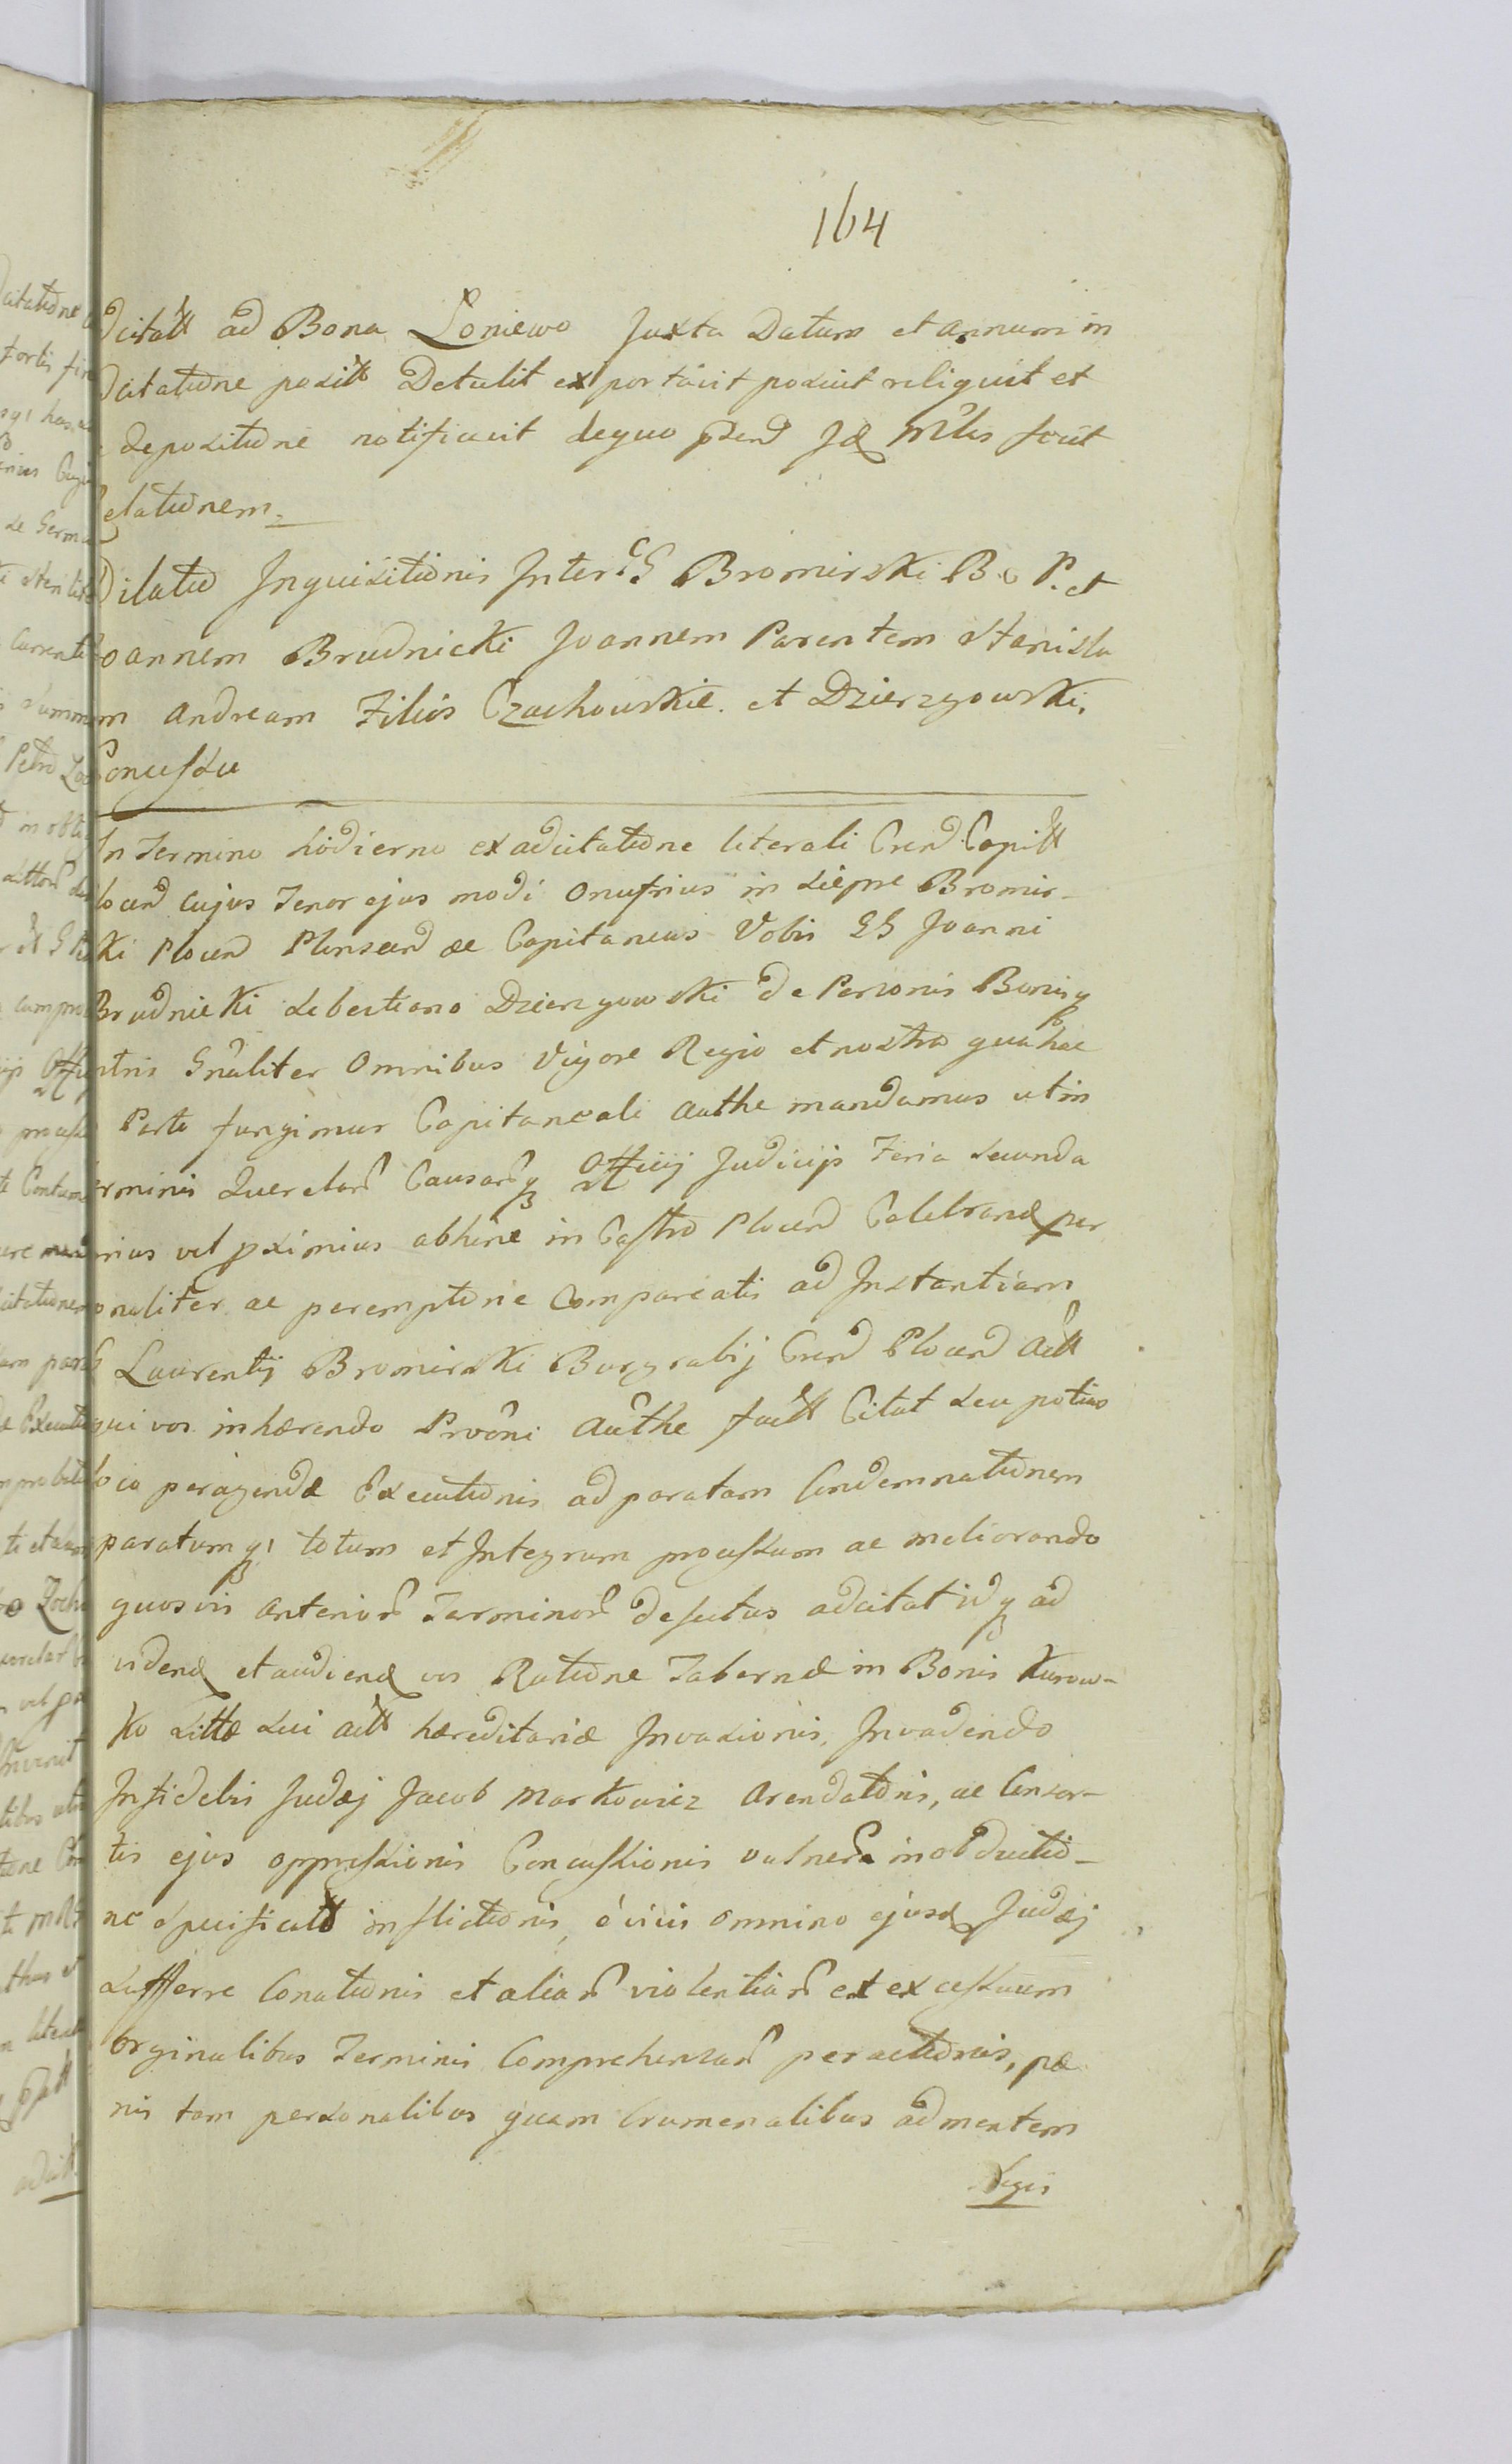 164
dcitatt ad Bona Łoniewo Juxta Datum et annum in
dcitatione positt Detulit exportavit posuit reliquit et
depositione notificavit dequo psend Jd Mtlis fecit
elationem
Dilatio Inquisitionis Inter G Bromirski B. P. et
oannem Brudnicki Joannem Parentem Stanisla
m Andream Filios Czachowskie et Dzierzgowski
Concussu
In Termino hodierno ex adcitatione literali Crend Capitt
locen cujus Tenor ejus modi Onufrius in Siepre Bromir-
ki Plocen Plenscen ac Capitaneus Vobis GG Joanni
Brudnicki Sebestiano Dzierzgowski de Personis Bonisq
ntris Gnaliter Omnibus Vigore Regio et nostra qua hac
Parte fungimur Capitaneali Authe mandamus ut in
rminis Querelar Causarq Officij Judicijs Feria Secunda
rius vel pximius abhinc in Castro Plocen Celebrand per
onaliter ac peremptorie Compareatis ad Instantiam
G Laurentij Bromirski Burgrabij Crend Plocen Actt
qui vos inhærendo Prvoni Authe factt Citat seu potius
ocia peragendæ Executionis ad paratam Condemnationem
paratumq totum et Integrum processum ac meliorando
quosvis anterior Terminor defectus adcitat idq ad
vidend et audiend vos Ratione Tabernæ in Bonis Kurow-
ko Sittæ sui actt hæreditariæ Invasionis, Invadendo
Infidelis Judæj Jacob Markowicz Arendatoris, ac Consor-
tis ejus oppressionis Concussionis vulner in obductio-
ne specificatt inflictionis, è vivis omnino ejusd Judæj
sufferre Conationis et aliar violentiar et excessuum
orginalibus Terminis Comprehensar peractionis, pæ
nis tam personalibus quam Crumenalibus ad mentem
Legis